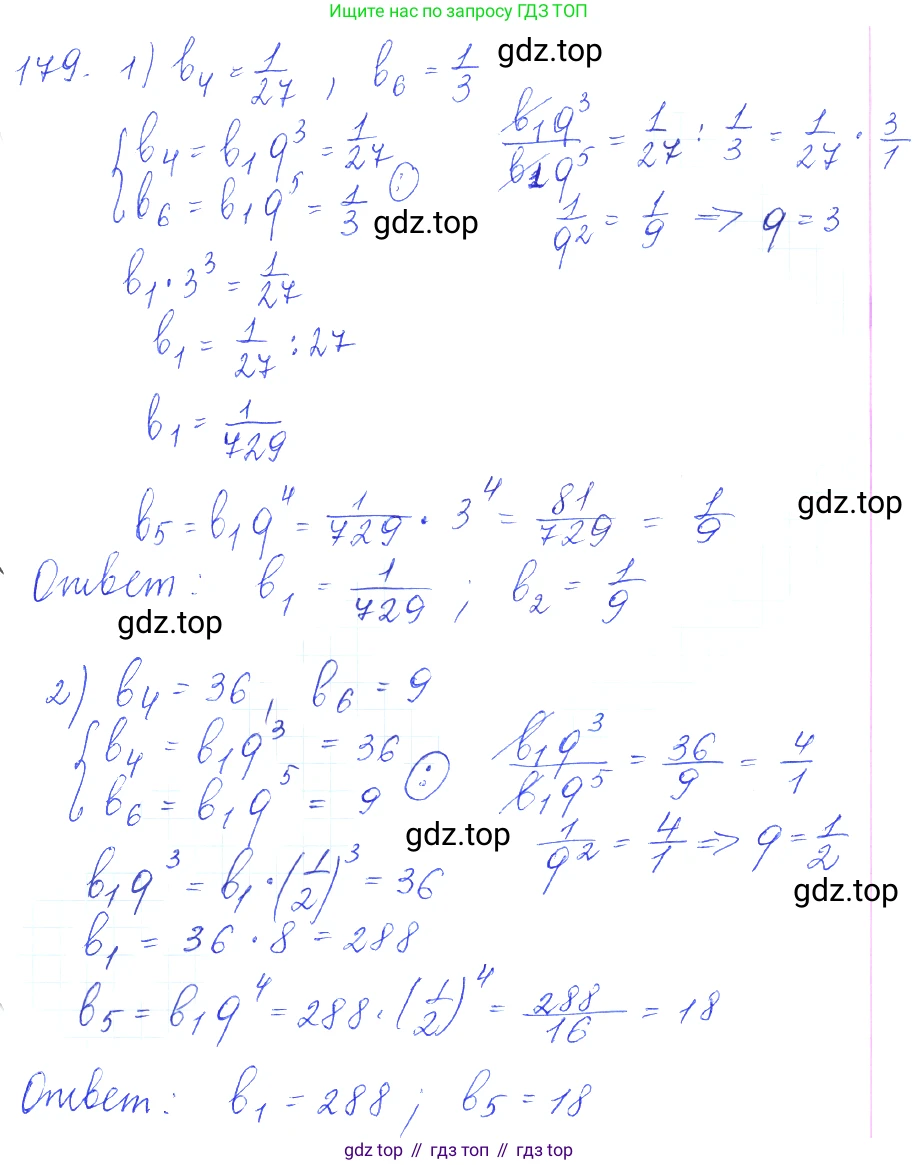 Ищите нас по запросу ГДЗ ТОП
179. 1) b₄ = 1/27, b₆ = 1/3
gdz.top
{ b₄ = b₁q³ = 1/27
b₆ = b₁q⁵ = 1/3 (:)
b₁q³/b₁q⁵ = 1/27 : 1/3 = 1/27 · 3/1
1/q² = 1/9 => q = 3
gdz.top
b₁ · 3³ = 1/27
b₁ = 1/27 : 27
b₁ = 1/729
b₅ = b₁q⁴ = 1/729 · 3⁴ = 81/729 = 1/9
gdz.top
Ответ: b₁ = 1/729; b₂ = 1/9
gdz.top
2) b₄ = 36, b₆ = 9
{ b₄ = b₁q³ = 36
b₆ = b₁q⁵ = 9 (:)
b₁q³/b₁q⁵ = 36/9 = 4/1
1/q² = 4/1 => q = 1/2
gdz.top
gdz.top
b₁q³ = b₁ · (1/2)³ = 36
b₁ = 36 · 8 = 288
b₅ = b₁q⁴ = 288 · (1/2)⁴ = 288/16 = 18
Ответ: b₁ = 288; b₅ = 18
gdz top // гдз топ // gdz top // гдз топ